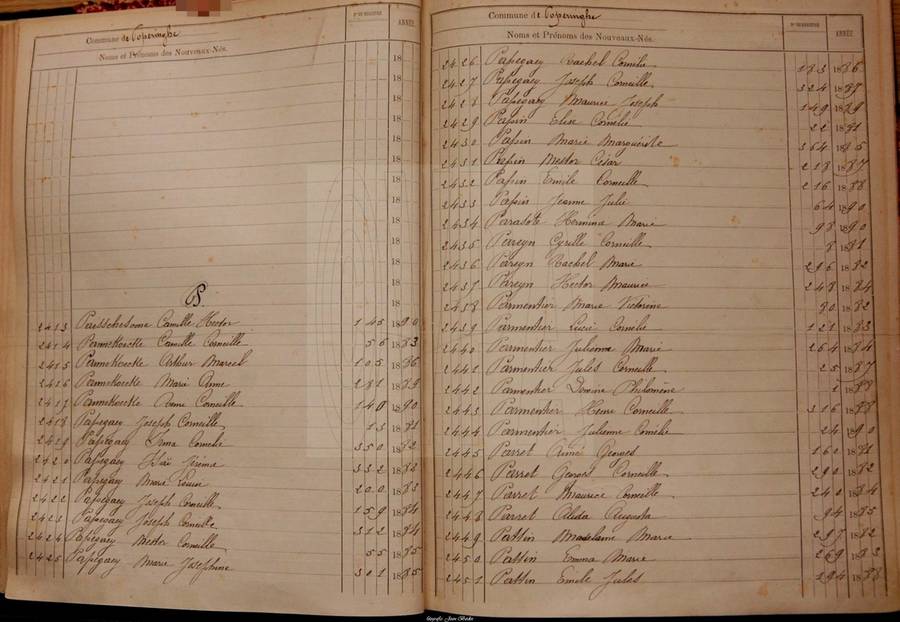 Commune de Poperinghe
N° DU REGISTRE
ANNÉE
Noms et Prénoms des Nouveaux-Nés.
18
18
18
18
18
18
18
18
18
18
18
18
18
P
2413 Paesschesoone Camille Hector 145 1890
2414 Pannekoecke Camille Corneille 56 1883
2415 Pannekoecke Arthur Marcel 105 1886
2416 Pannekoecke Marie Anne 281 1889
2417 Pannekoecke Corneille 140 1890
2418 Papegaey Joseph Corneille 13 1881
2419 Papegaey Irma Cornelie 350 1882
2420 Papegaey Jérémie 332 1882
2421 Papegaey Marie Louise 200 1883
2422 Papegaey Joseph Corneille 159 1884
2423 Papegaey Joseph Corneille 312 1884
2424 Papegaey Nestor Corneille 55 1885
2425 Papegaey Marie Joséphine 301 1885
Commune de Poperinghe
N° DU REGISTRE
ANNÉE
Noms et Prénoms des Nouveaux-Nés.
2426 Papegaey Rachel Cornelie 183 1886
2427 Papegaey Joseph Corneille 324 1887
2428 Papegaey Maurice Joseph 149 1889
2429 Papin Elise Cornelie 22 1881
2430 Papin Marie Marguerite 364 1885
2431 Papin Nestor César 218 1887
2432 Papin Emile Corneille 216 1888
2433 Papin Jeanne Julie 64 1890
2434 Paradote Hermina Marie 98 1890
2435 Pareyn Cyrille Corneille 8 1881
2436 Pareyn Rachel Marie 296 1882
2437 Pareyn Hector Maurice 248 1884
2438 Parmentier Marie Victorine 90 1882
2439 Parmentier Lucie Cornelie 121 1883
2440 Parmentier Julienne Marie 264 1884
2441 Parmentier Jules Corneille 25 1887
2442 Parmentier Philomène 2 1888
2443 Parmentier Henri Corneille 316 1888
2444 Parmentier Julienne Cornelie 24 1890
2445 Parret Aimé Georges 160 1881
2446 Parret Georges Corneille 290 1882
2447 Parret Maurice Corneille 240 1884
2448 Parret Alida Augusta 94 1885
2449 Pattin Madelaine Marie 297 1882
2450 Pattin Emma Marie 269 1883
2451 Pattin Emile Jules 294 1888